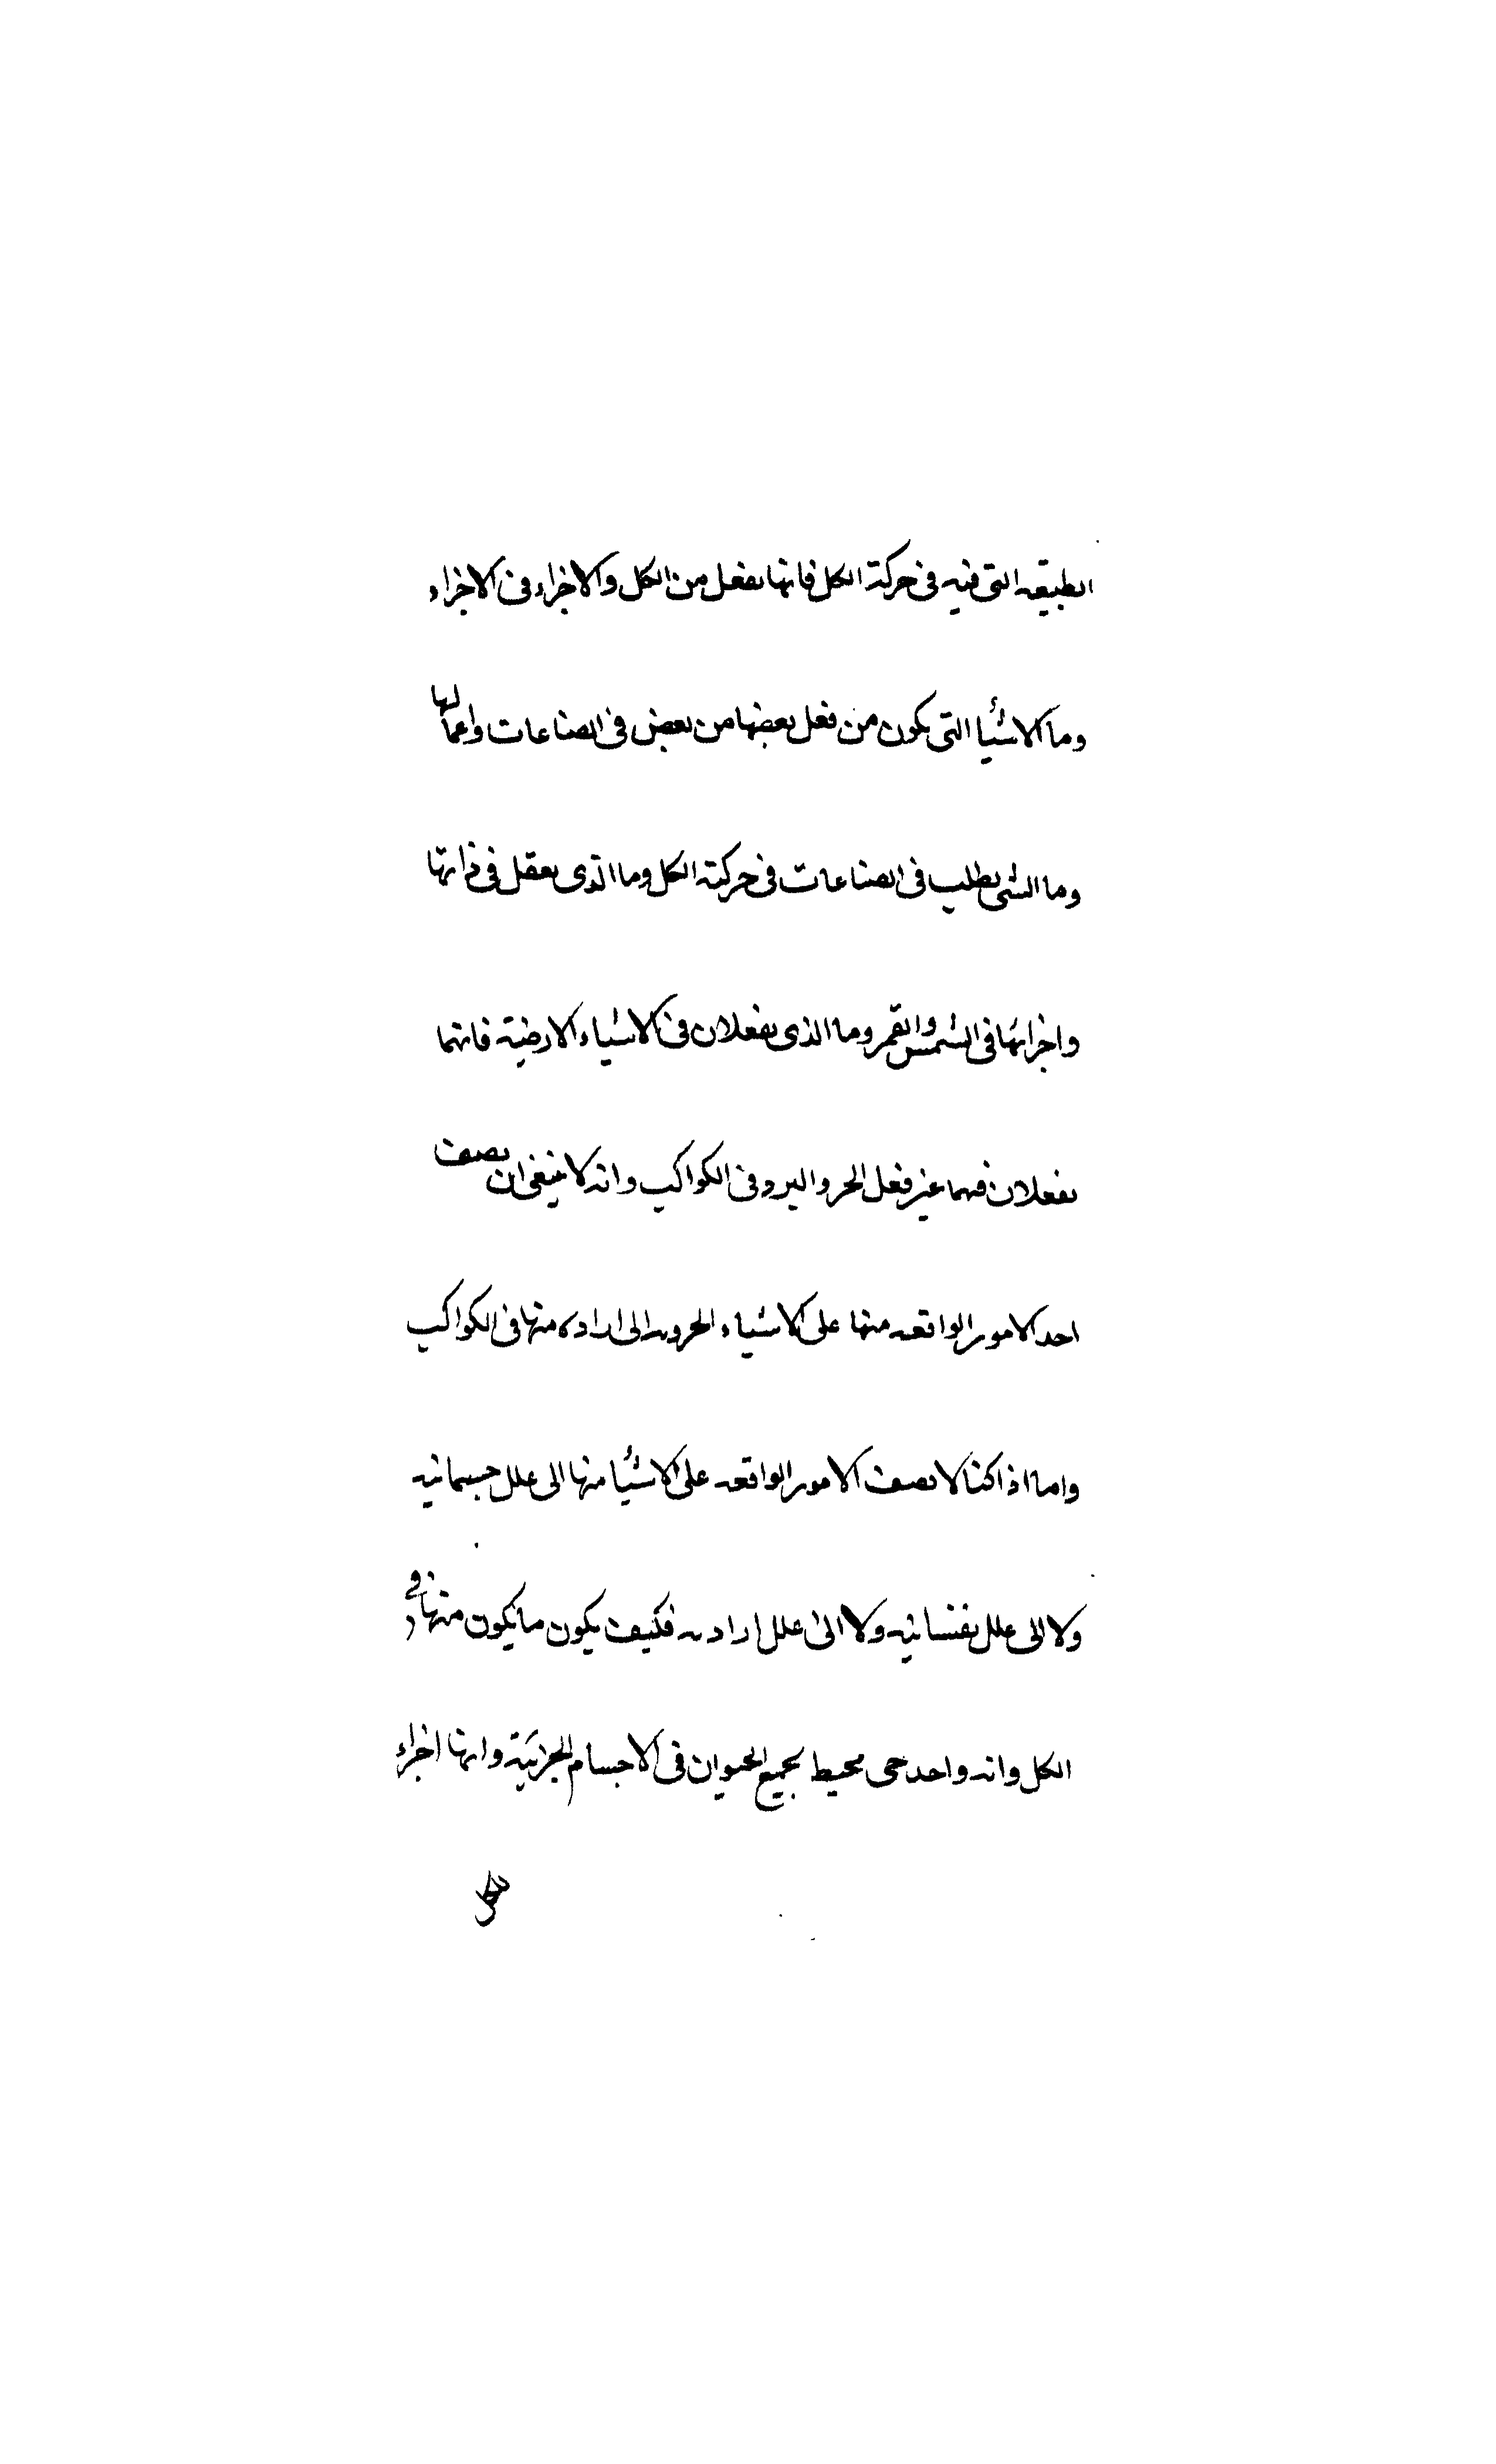 الطبيعه التى فيه فى حركة الكل فانها يفعل من الكل والاجزاء فى الاجزاء
وما الاشيأ التى يكون من فعل بعضها من بعض فى الصناعات واعمالها
وما الشى يطلب فى الصناعات فى حركة الكل وما الذى يعقل فى ذاتها
واجزائها فى الشمس والقمر وما الذى يفعلان فى الاشياء الارضية فانهما
يفعلان فيهما غير فعل الحر والبرد فى الكواكب وانه لا ينبغى ان يصف
احد الامور الواقعه منها على الاشياء الجرويه الى اراده منها فى الكواكب
واما اذا كنا لا نصف الامور الواقعه على الاشيأ منها الى علل جسمانيه
ولا الى علل نفسانيه ولا الى علل اراديه فكيف يكون ما يكون منها فى
الكل وانه واحد حى محيط بجميع الحيوان فى الاجسام الجزئية وانها اجزاء